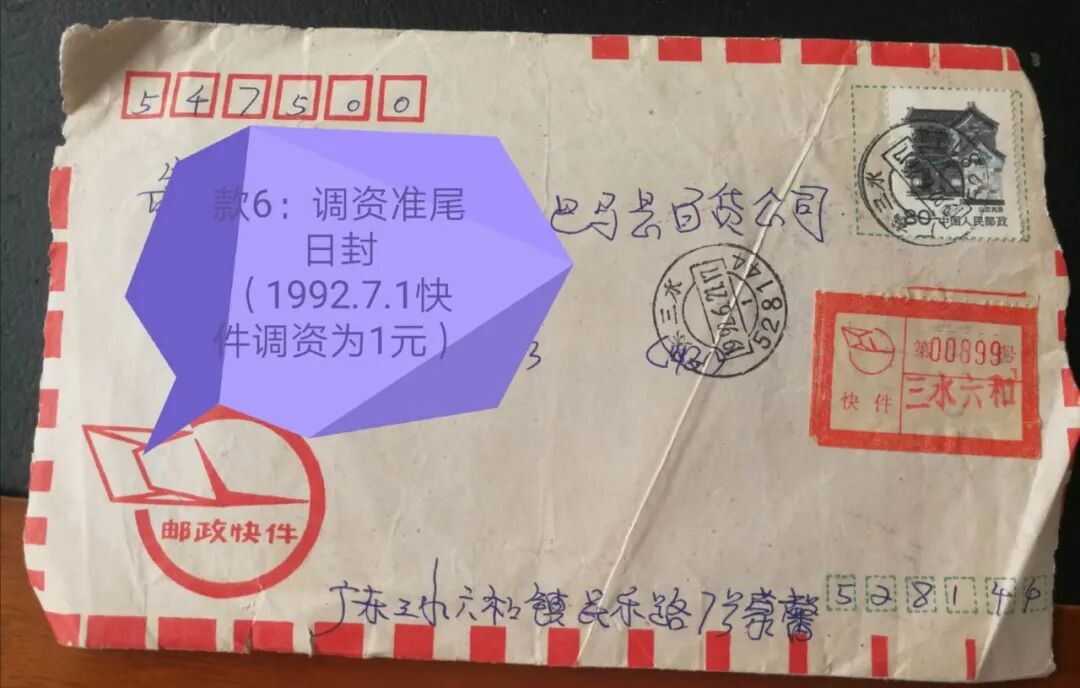 547500
款6：调资准尾
日封
（1992.7.1快
件调资为1元）
巴马县百货公司
80 中国人民邮政
三水
528
三水
528144
第00899号
快件
三水六和
邮政快件
广东三水六和镇民乐路7号
528144